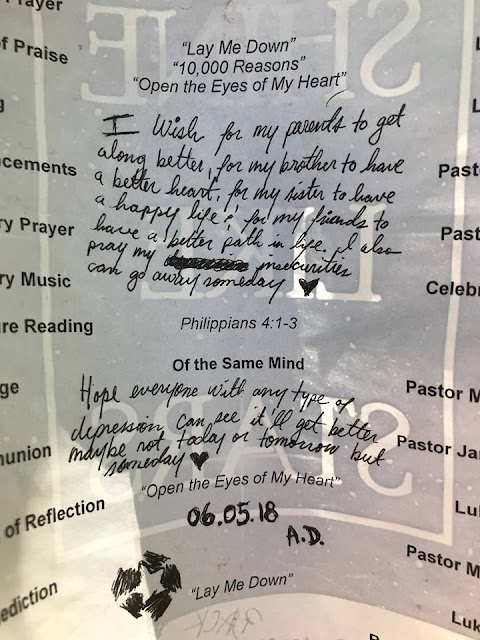 Prayer
of Praise
"Lay Me Down"
"10,000 Reasons"
"Open the Eyes of My Heart"
I Wish for my parents to get
along better, for my brother to have
a better heart, for my sister to have
a happy life, for my friends to
have a better path in life. I also
pray my insecurities
can go away someday ♥
ncements
Past
ry Prayer
Past
ry Music
Celebr
re Reading
Philippians 4:1-3
Of the Same Mind
Hope everyone with any type of
depression can see it'll get better
maybe not today or tomorrow but
someday ♥
ge
Pastor M
Pastor Jar
munion
"Open the Eyes of My Heart"
of Reflection
Luk
06.05.18
A.D.
Pastor M
ediction
"Lay Me Down"
Luk